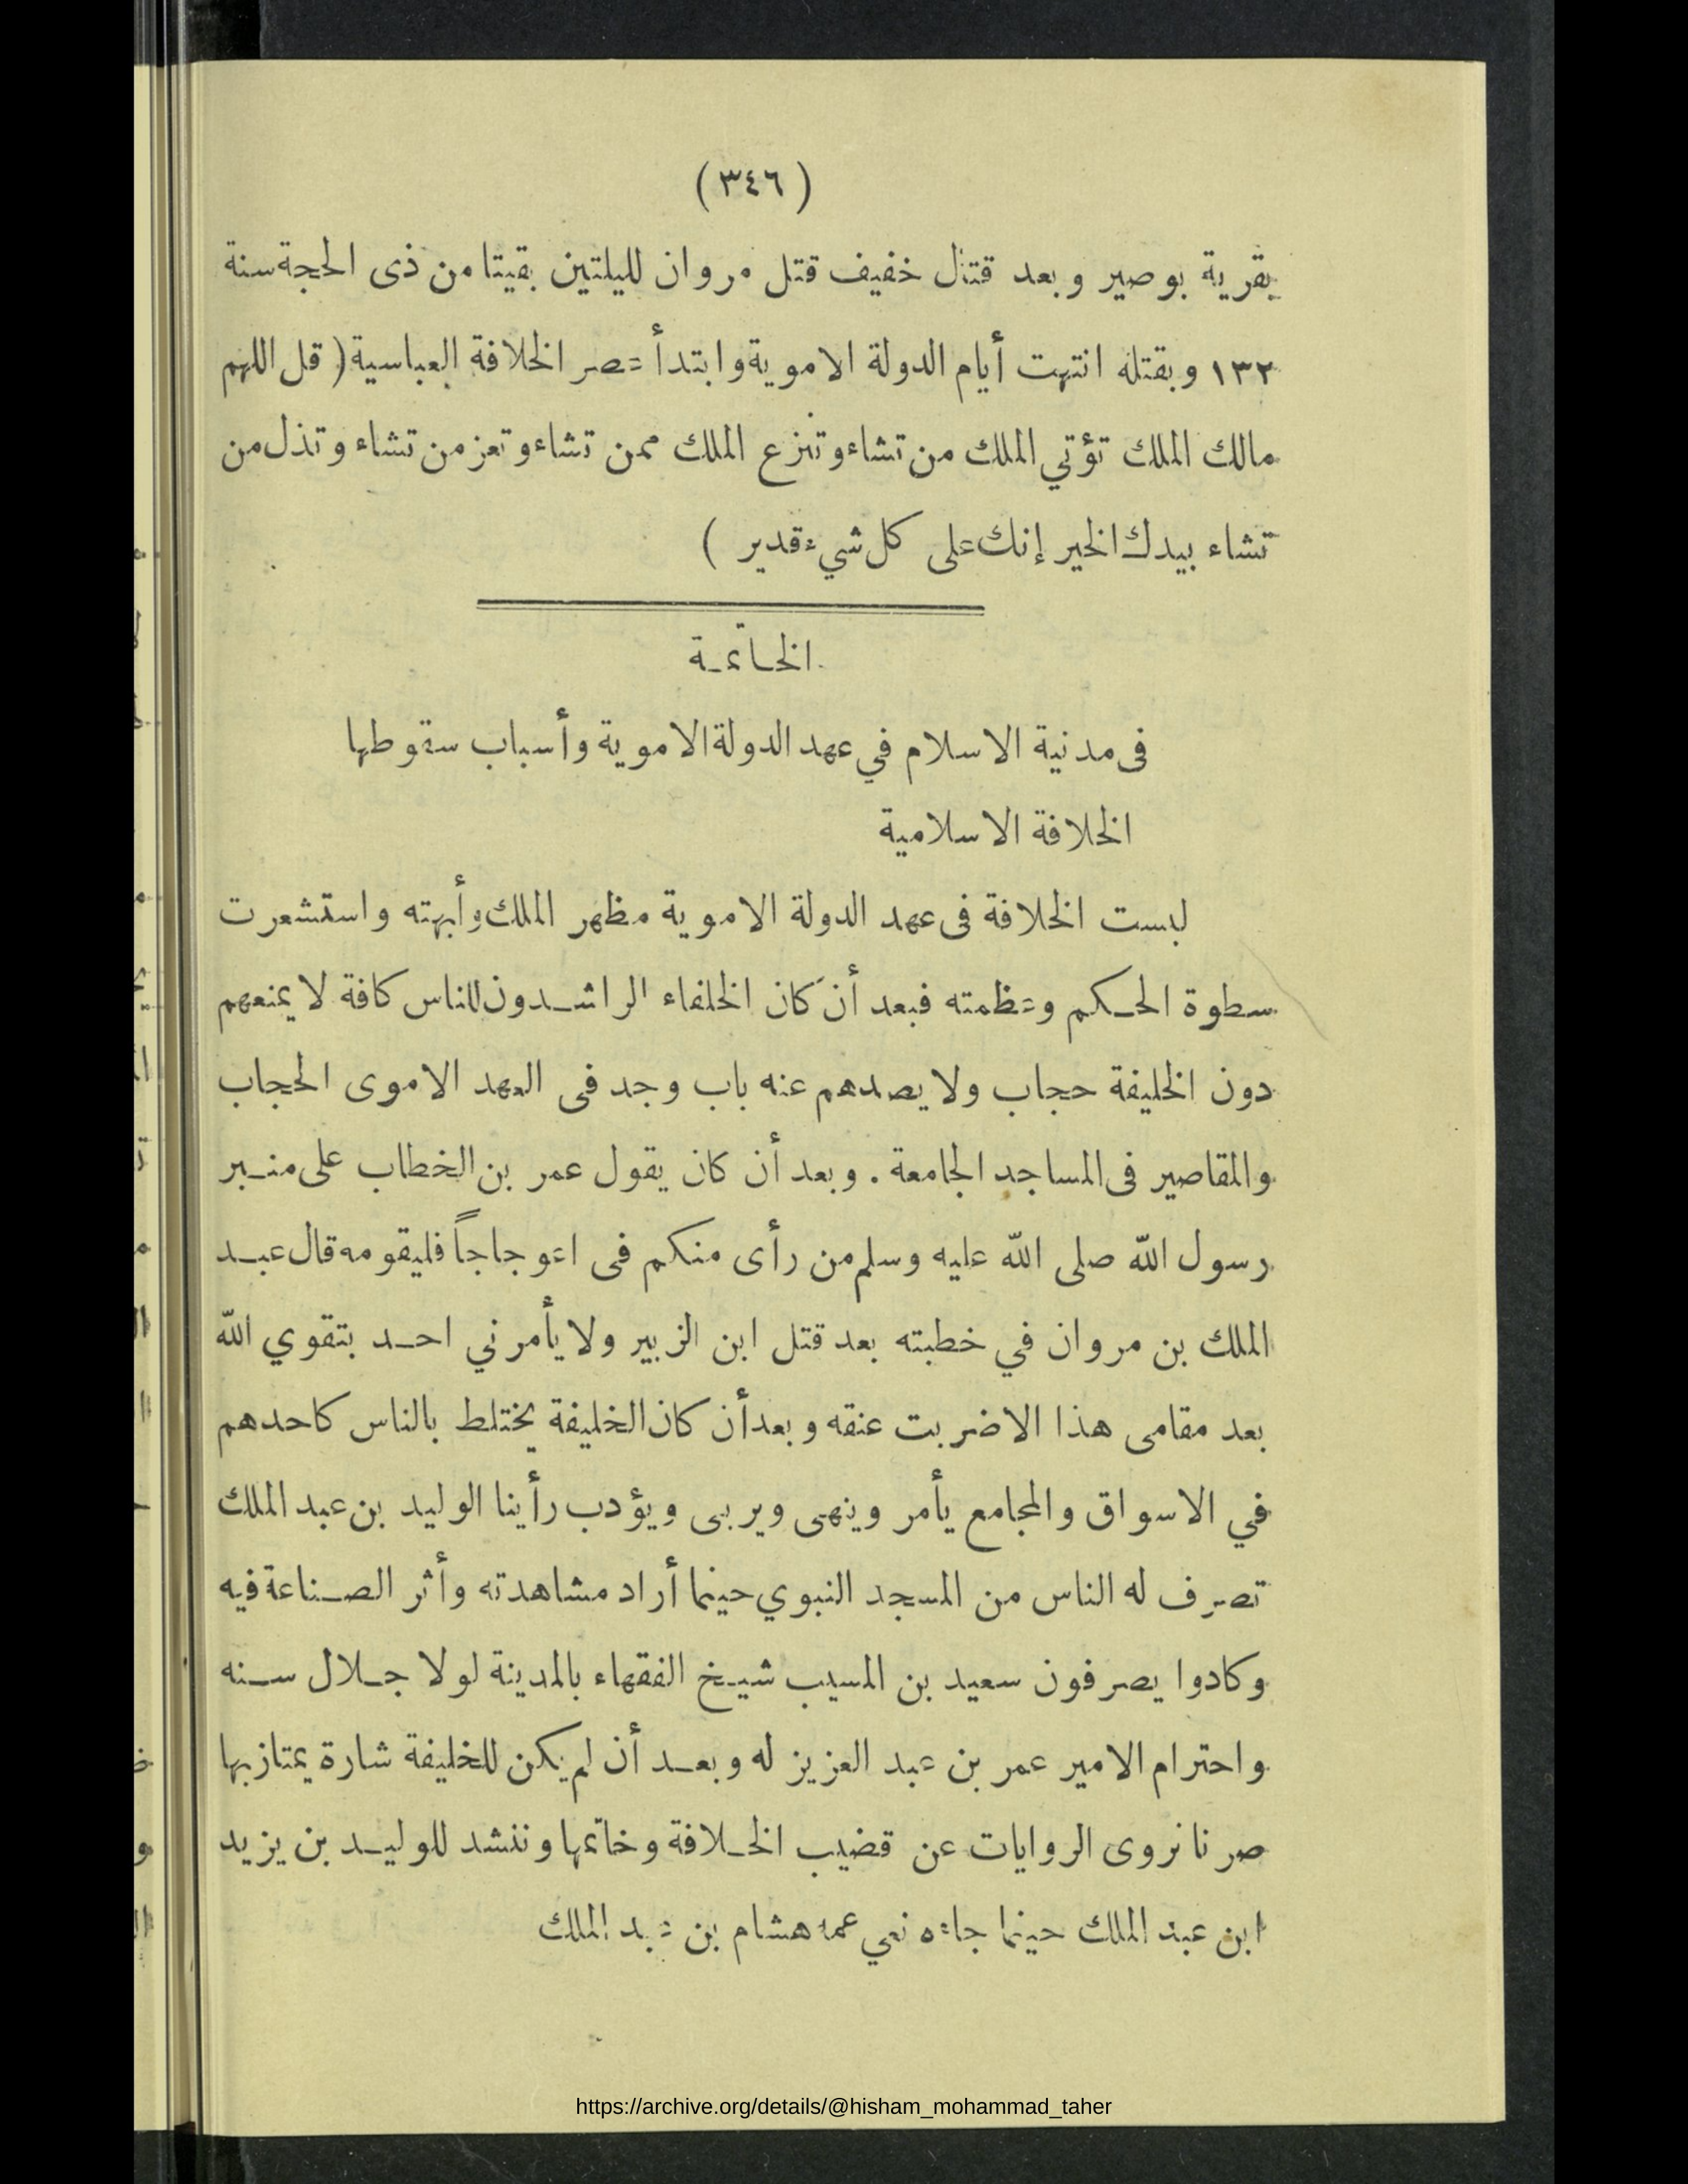 (٣٤٦)
بقرية بوصير وبعد قتال خفيف قتل مروان لليلتين بقيتا من ذى الحجة سنة
١٣٢ وبقتله انتهت أيام الدولة الاموية وابتدأ عصر الخلافة العباسية (قل اللهم
مالك الملك تؤتي الملك من تشاء وتنزع الملك ممن تشاء وتعز من تشاء وتذل من
تشاء بيدك الخير إنك على كل شيء قدير )
الخاتمة
فى مدنية الاسلام في عهد الدولة الاموية وأسباب سقوطها
الخلافة الاسلامية
لبست الخلافة فى عهد الدولة الاموية مظهر الملك وأبهته واستشعرت
سطوة الحكم وعظمته فبعد أن كان الخلفاء الراشدون للناس كافة لا يمنعهم
دون الخليفة حجاب ولا يصدهم عنه باب وجد فى العهد الاموى الحجاب
والمقاصير فى المساجد الجامعة . وبعد أن كان يقول عمر بن الخطاب على منبر
رسول الله صلى الله عليه وسلم من رأى منكم فى اعوجاجاً فليقومه قال عبد
الملك بن مروان في خطبته بعد قتل ابن الزبير ولا يأمرني احد بتقوي الله
بعد مقامى هذا الا ضربت عنقه وبعد أن كان الخليفة يختلط بالناس كاحدهم
في الاسواق والمجامع يأمر وينهى ويربى ويؤدب رأينا الوليد بن عبد الملك
تصرف له الناس من المسجد النبوي حينما أراد مشاهدته وأثر الصناعة فيه
وكادوا يصرفون سعيد بن المسيب شيخ الفقهاء بالمدينة لولا جلال سنه
واحترام الامير عمر بن عبد العزيز له وبعد أن لم يكن للخليفة شارة يمتاز بها
صرنا نروى الروايات عن قضيب الخلافة وخاتمها وننشد للوليد بن يزيد
ابن عبد الملك حينما جاءه نعي عمه هشام بن عبد الملك
https://archive.org/details/@hisham_mohammad_taher